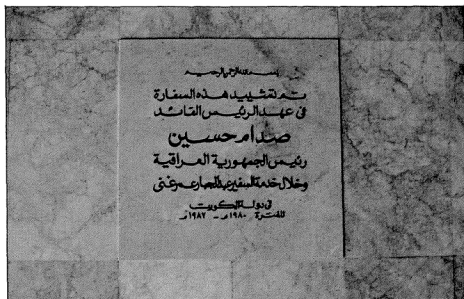 بسم الله الرحمن الرحيم
تم تشييد هذه السفارة
في عهد الرئيس القائد
صدام حسين
رئيس الجمهورية العراقية
وخلال خدمة السفير عبدالجبار عمر غني
في دولة الكويت
للفترة ١٩٨٠م - ١٩٨٢م